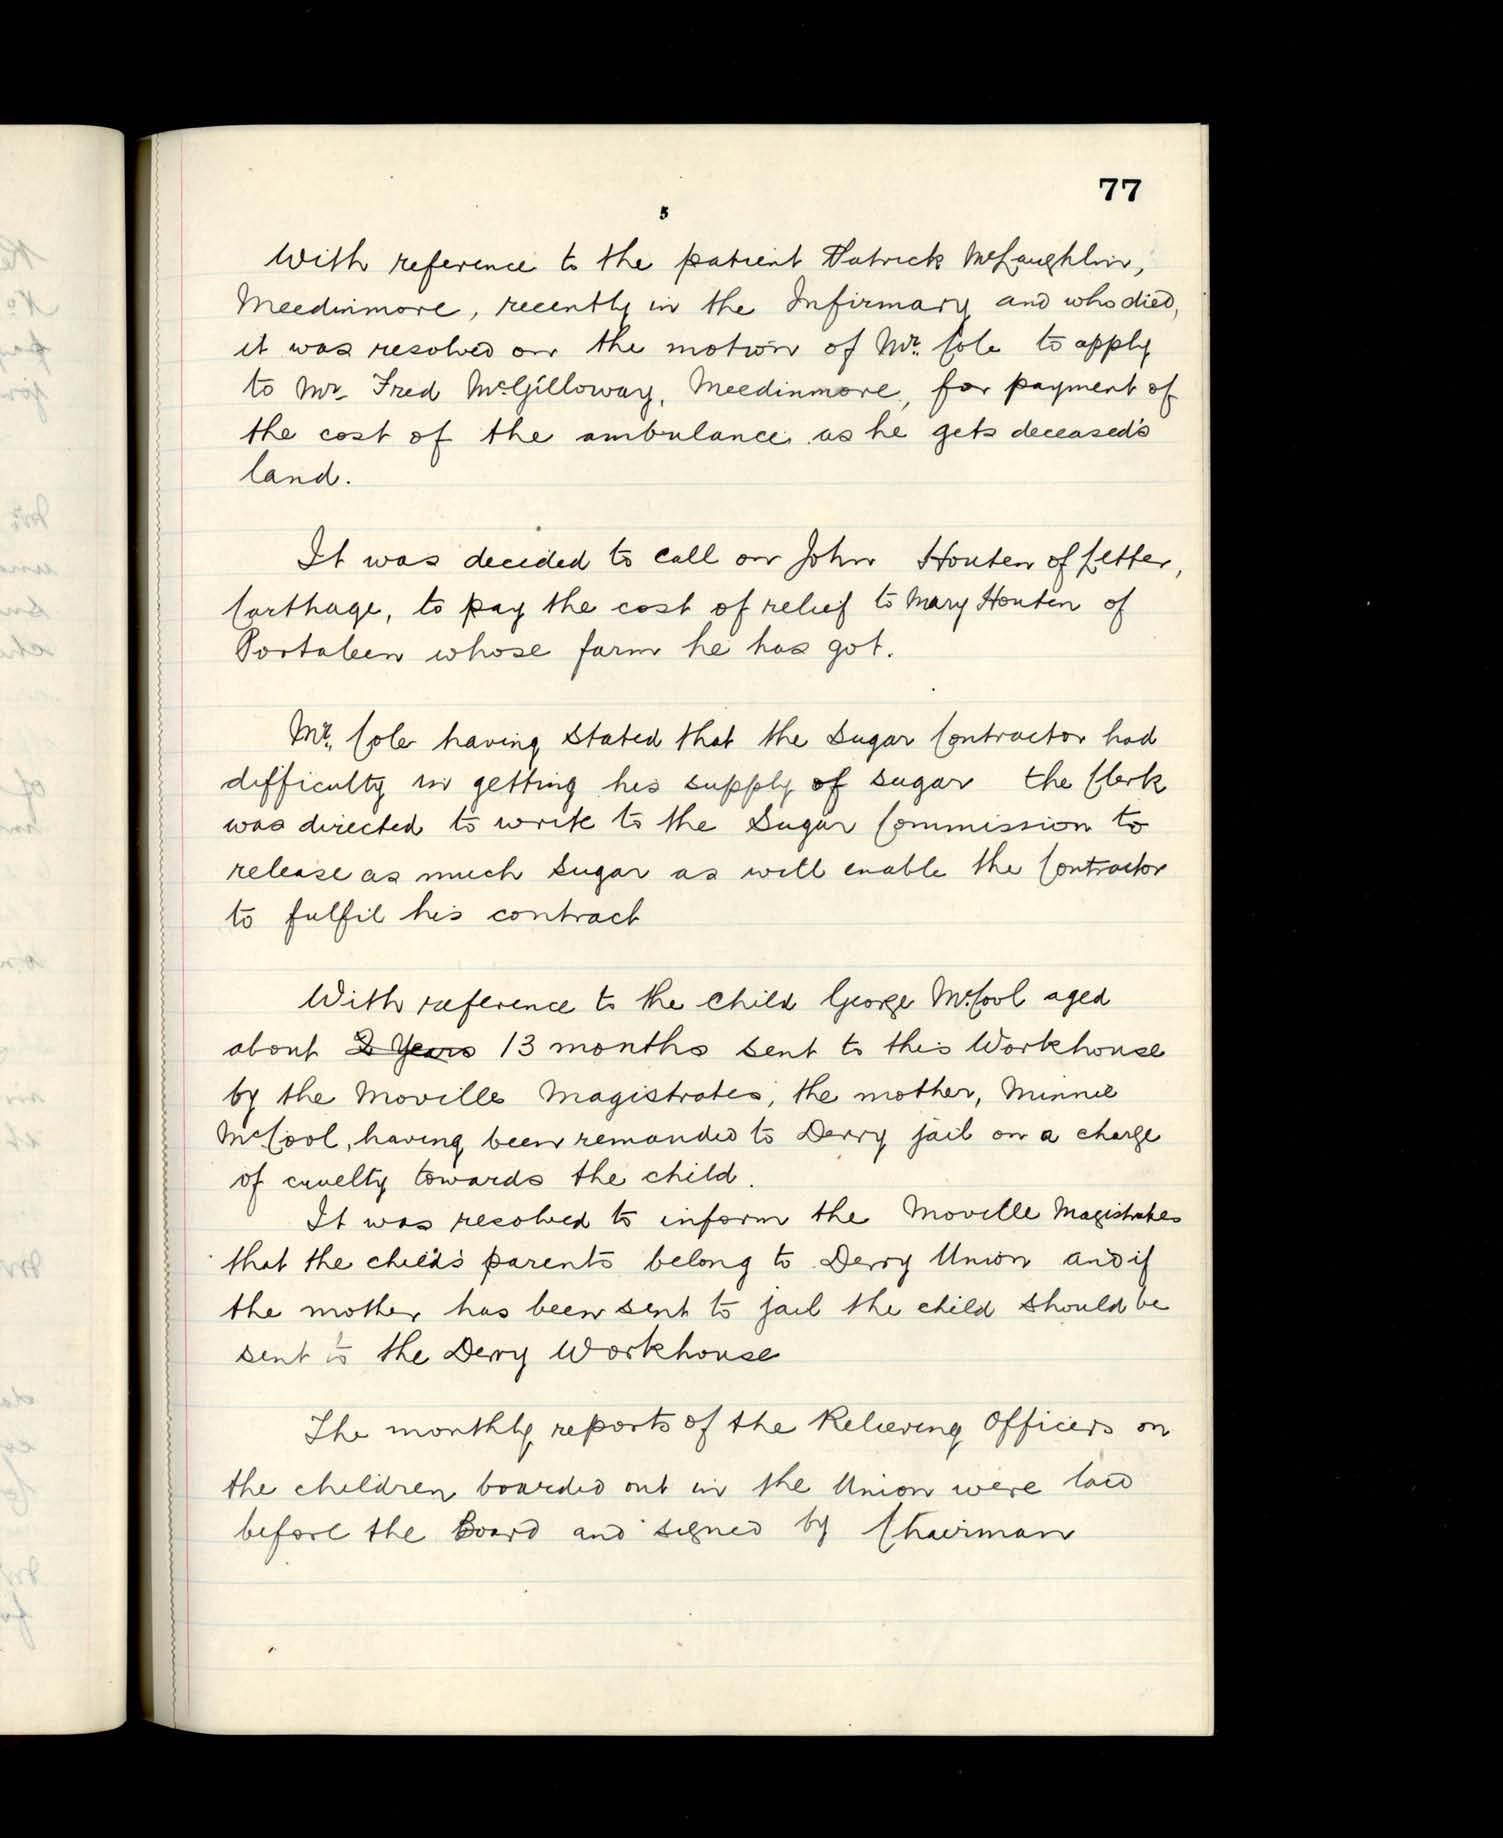 77
5
With reference to the patient Patrick McLaughlin,
Meedinmore, recently in the Infirmary and who died,
it was resolved on the motion of Mr. Cole to apply
to Mr. Fred McGilloway, Meedinmore, for payment of
the cost of the ambulance as he gets deceased's
land.
It was decided to call on John Houten of Letter,
Carthage, to pay the cost of relief to Mary Houten of
Portaleen whose farm he has got.
Mr. Cole having stated that the Sugar Contractor had
difficulty in getting his supply of sugar the Clerk
was directed to write to the Sugar Commission to
release as much Sugar as will enable the Contractor
to fulfil his contract
With reference to the child George McCool aged
about 2 Years 13 months sent to this Workhouse
by the Moville Magistrates, the mother, Minnie
McCool, having been remanded to Derry jail on a charge
of cruelty towards the child.
It was resolved to inform the Moville Magistrates
that the child's parents belong to Derry Union and if
the mother has been sent to jail the child should be
sent to the Derry Workhouse
The monthly reports of the Relieving Officers on
the children boarded out in the Union were laid
before the Board and signed by Chairman